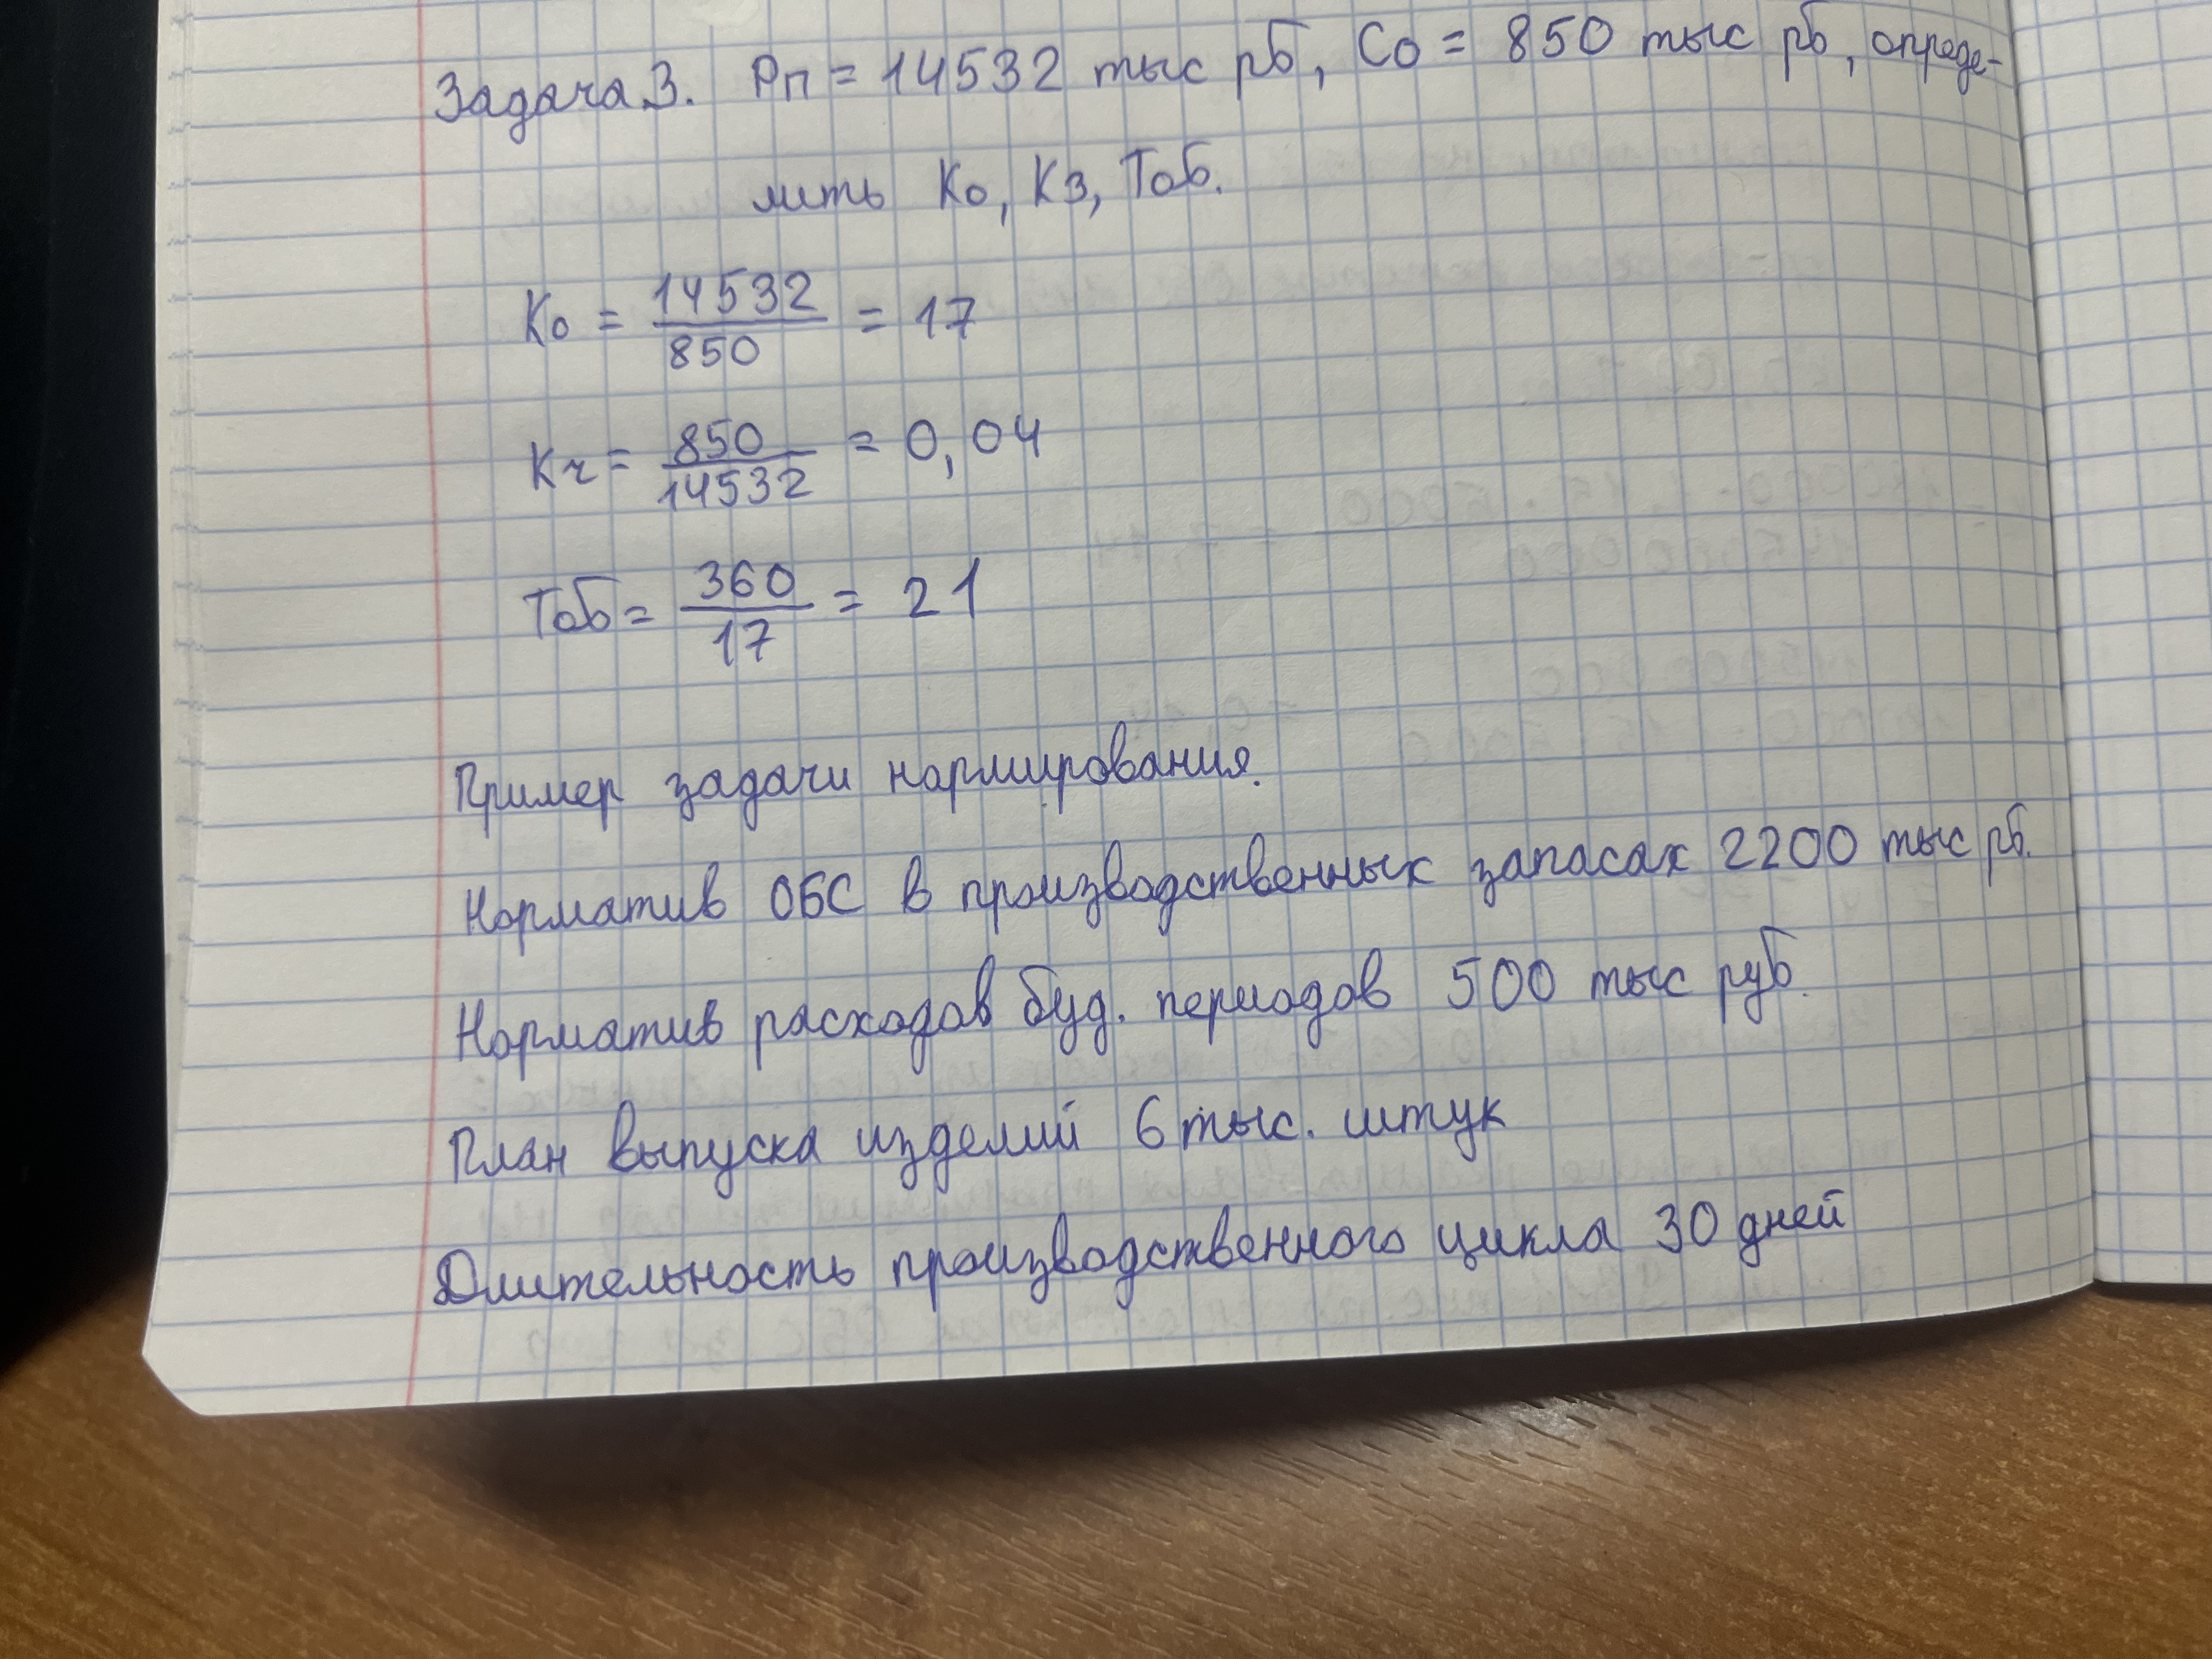 Задача 3. Рп = 14532 тыс рб, Со = 850 тыс рб, опреде-
лить Ко, Кз, Тоб.
Ко = 14532 / 850 = 17
Кч = 850 / 14532 = 0,04
Тоб = 360 / 17 = 21
Пример задачи нормирования.
Норматив ОБС в производственных запасах 2200 тыс рб.
Норматив расходов буд. периодов 500 тыс руб.
План выпуска изделий 6 тыс. штук
Длительность производственного цикла 30 дней